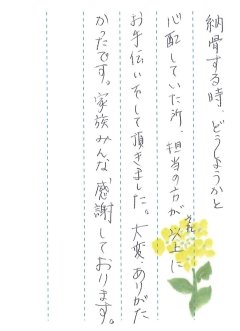 納骨する時、どうしようかと
心配していた所、担当の方がそれ以上に
お手伝いをして頂きました。大変ありがた
かったです。家族みんな感謝しております。